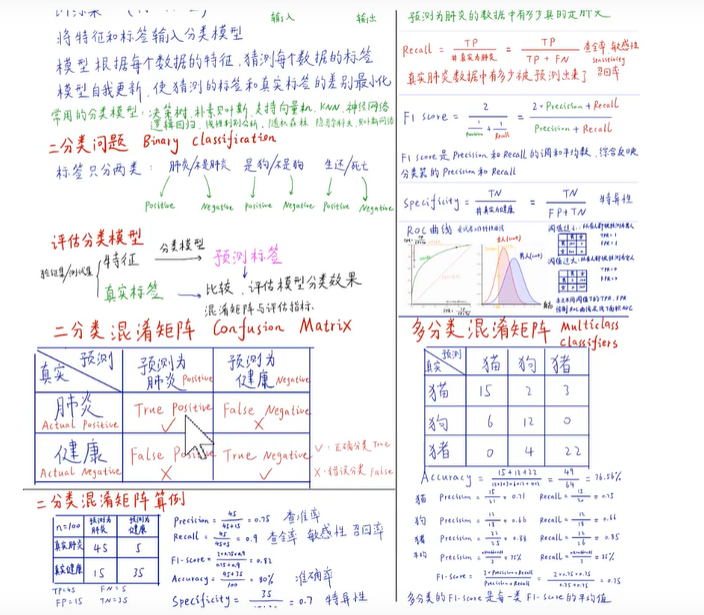 输入 输出
将特征和标签输入分类模型
模型根据每个数据的特征,猜测每个数据的标签
模型自我更新,使猜测的标签和真实标签的差别最小化
常用的分类模型:决策树,朴素贝叶斯,支持向量机,KNN,神经网络
逻辑回归,线性判别分析,随机森林
二分类问题 Binary classification
标签只分两类: 肺炎/不是肺炎 是狗/不是狗 生还/死亡
Positive Negative Positive Negative Positive Negative
评估分类模型
特征
分类模型
预测标签
真实标签
比较,评估模型分类效果
混淆矩阵与评估指标.
二分类混淆矩阵 Confusion Matrix
预测
真实
预测为肺炎 Positive
预测为健康 Negative
肺炎
Actual Positive
True Positive
False Negative
健康
Actual Negative
False Positive
True Negative
✓:正确分类 True
X:错误分类 False
二分类混淆矩阵算例
n=100 预测为肺炎 预测为健康
真实肺炎 45 5
真实健康 15 35
TP=45 FN=5
FP=15 TN=35
Precision = 45/45+15 = 0.75 查准率
Recall = 45/45+5 = 0.9 查全率 敏感性 召回率
F1-score = = 0.82
Accuracy = 45+35/100 = 80% 准确率
Specificity = 35 = 0.7 特异性
预测为肺炎的数据中有多少真的是肺炎
Recall = TP/#真实为肺炎 = TP/TP+FN 查全率 敏感性 sensitivity 召回率
真实肺炎数据中有多少被预测出来了
F1 score = 2/1/Precision + 1/Recall = 2·Precision·Recall/Precision+Recall
F1 score是Precision和Recall的调和平均数,综合反映
分类器的Precision和Recall
Specificity = TN/#真实为健康 = TN/FP+TN 特异性
ROC曲线
多分类混淆矩阵 Multiclass classifiers
预测
真实
猫 狗 猪
猫 15 2 3
狗 6 12 0
猪 0 4 22
Accuracy = 15+12+22 = 49/64 = 76.56%
猫 Precision = = 0.71 Recall = = 0.75
狗 Precision = = 0.66 Recall = = 0.66
猪 Precision = = 0.88 Recall = = 0.85
平均 Precision = = 75% Recall =
F1-Score = 2·Precision·Recall/Precision+Recall = = 0.75
多分类的F1-Score是每一类F1-Score的平均值